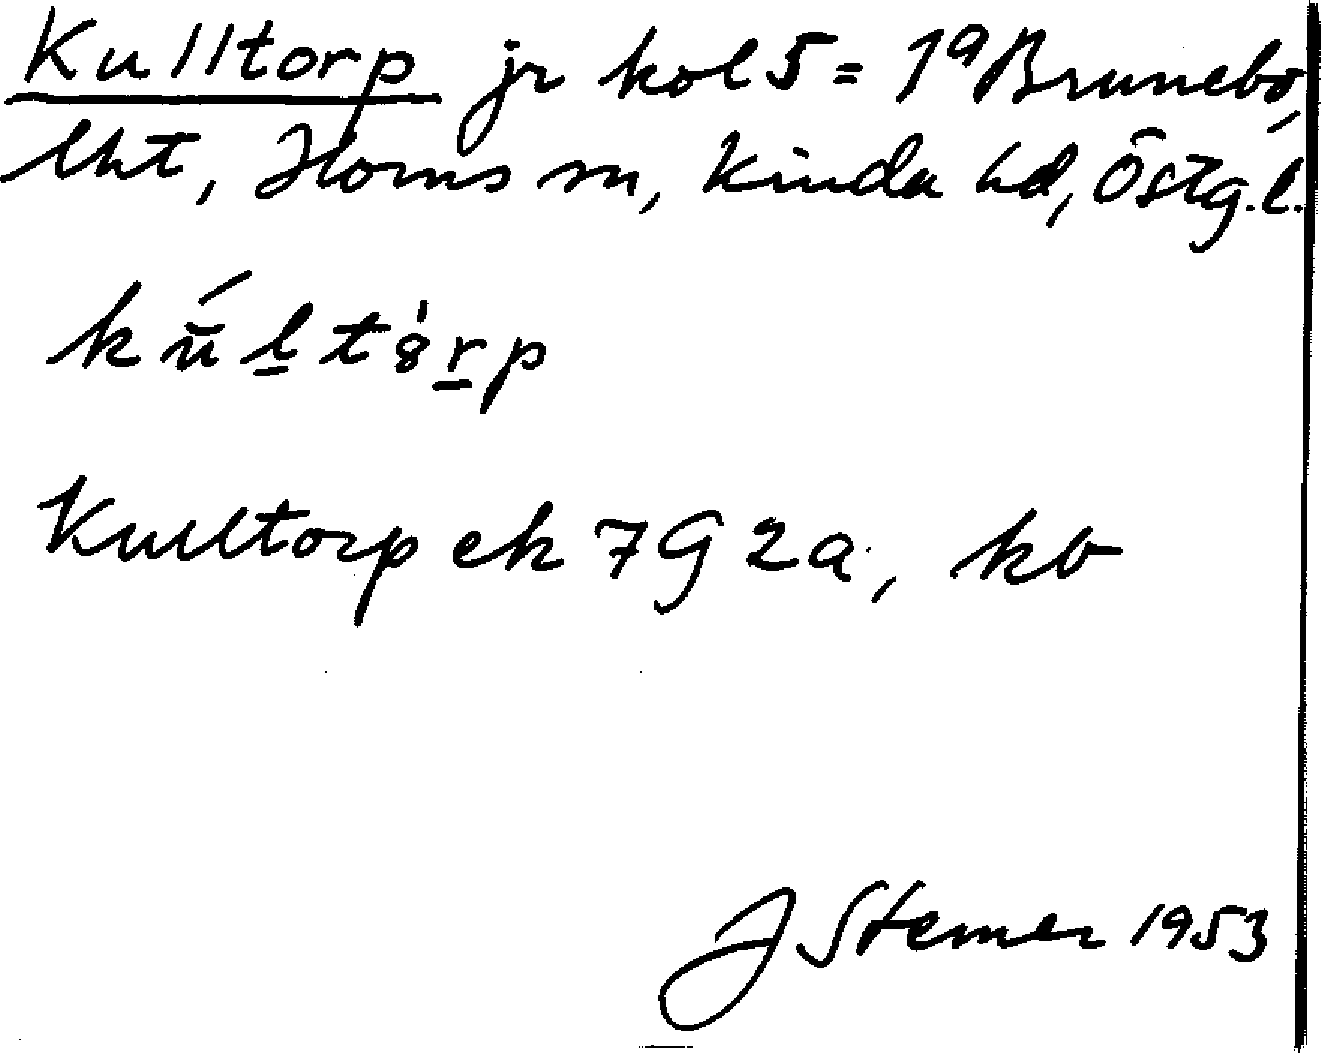 Kulltorp jr kol 5 = 1ª Brunebo,
lht, Horns sn, Kinda hd, Östg.l.
kū́l̲tȣ̍r̲p
Kulltorp ek 7G2a, kb
J Sterner 1953